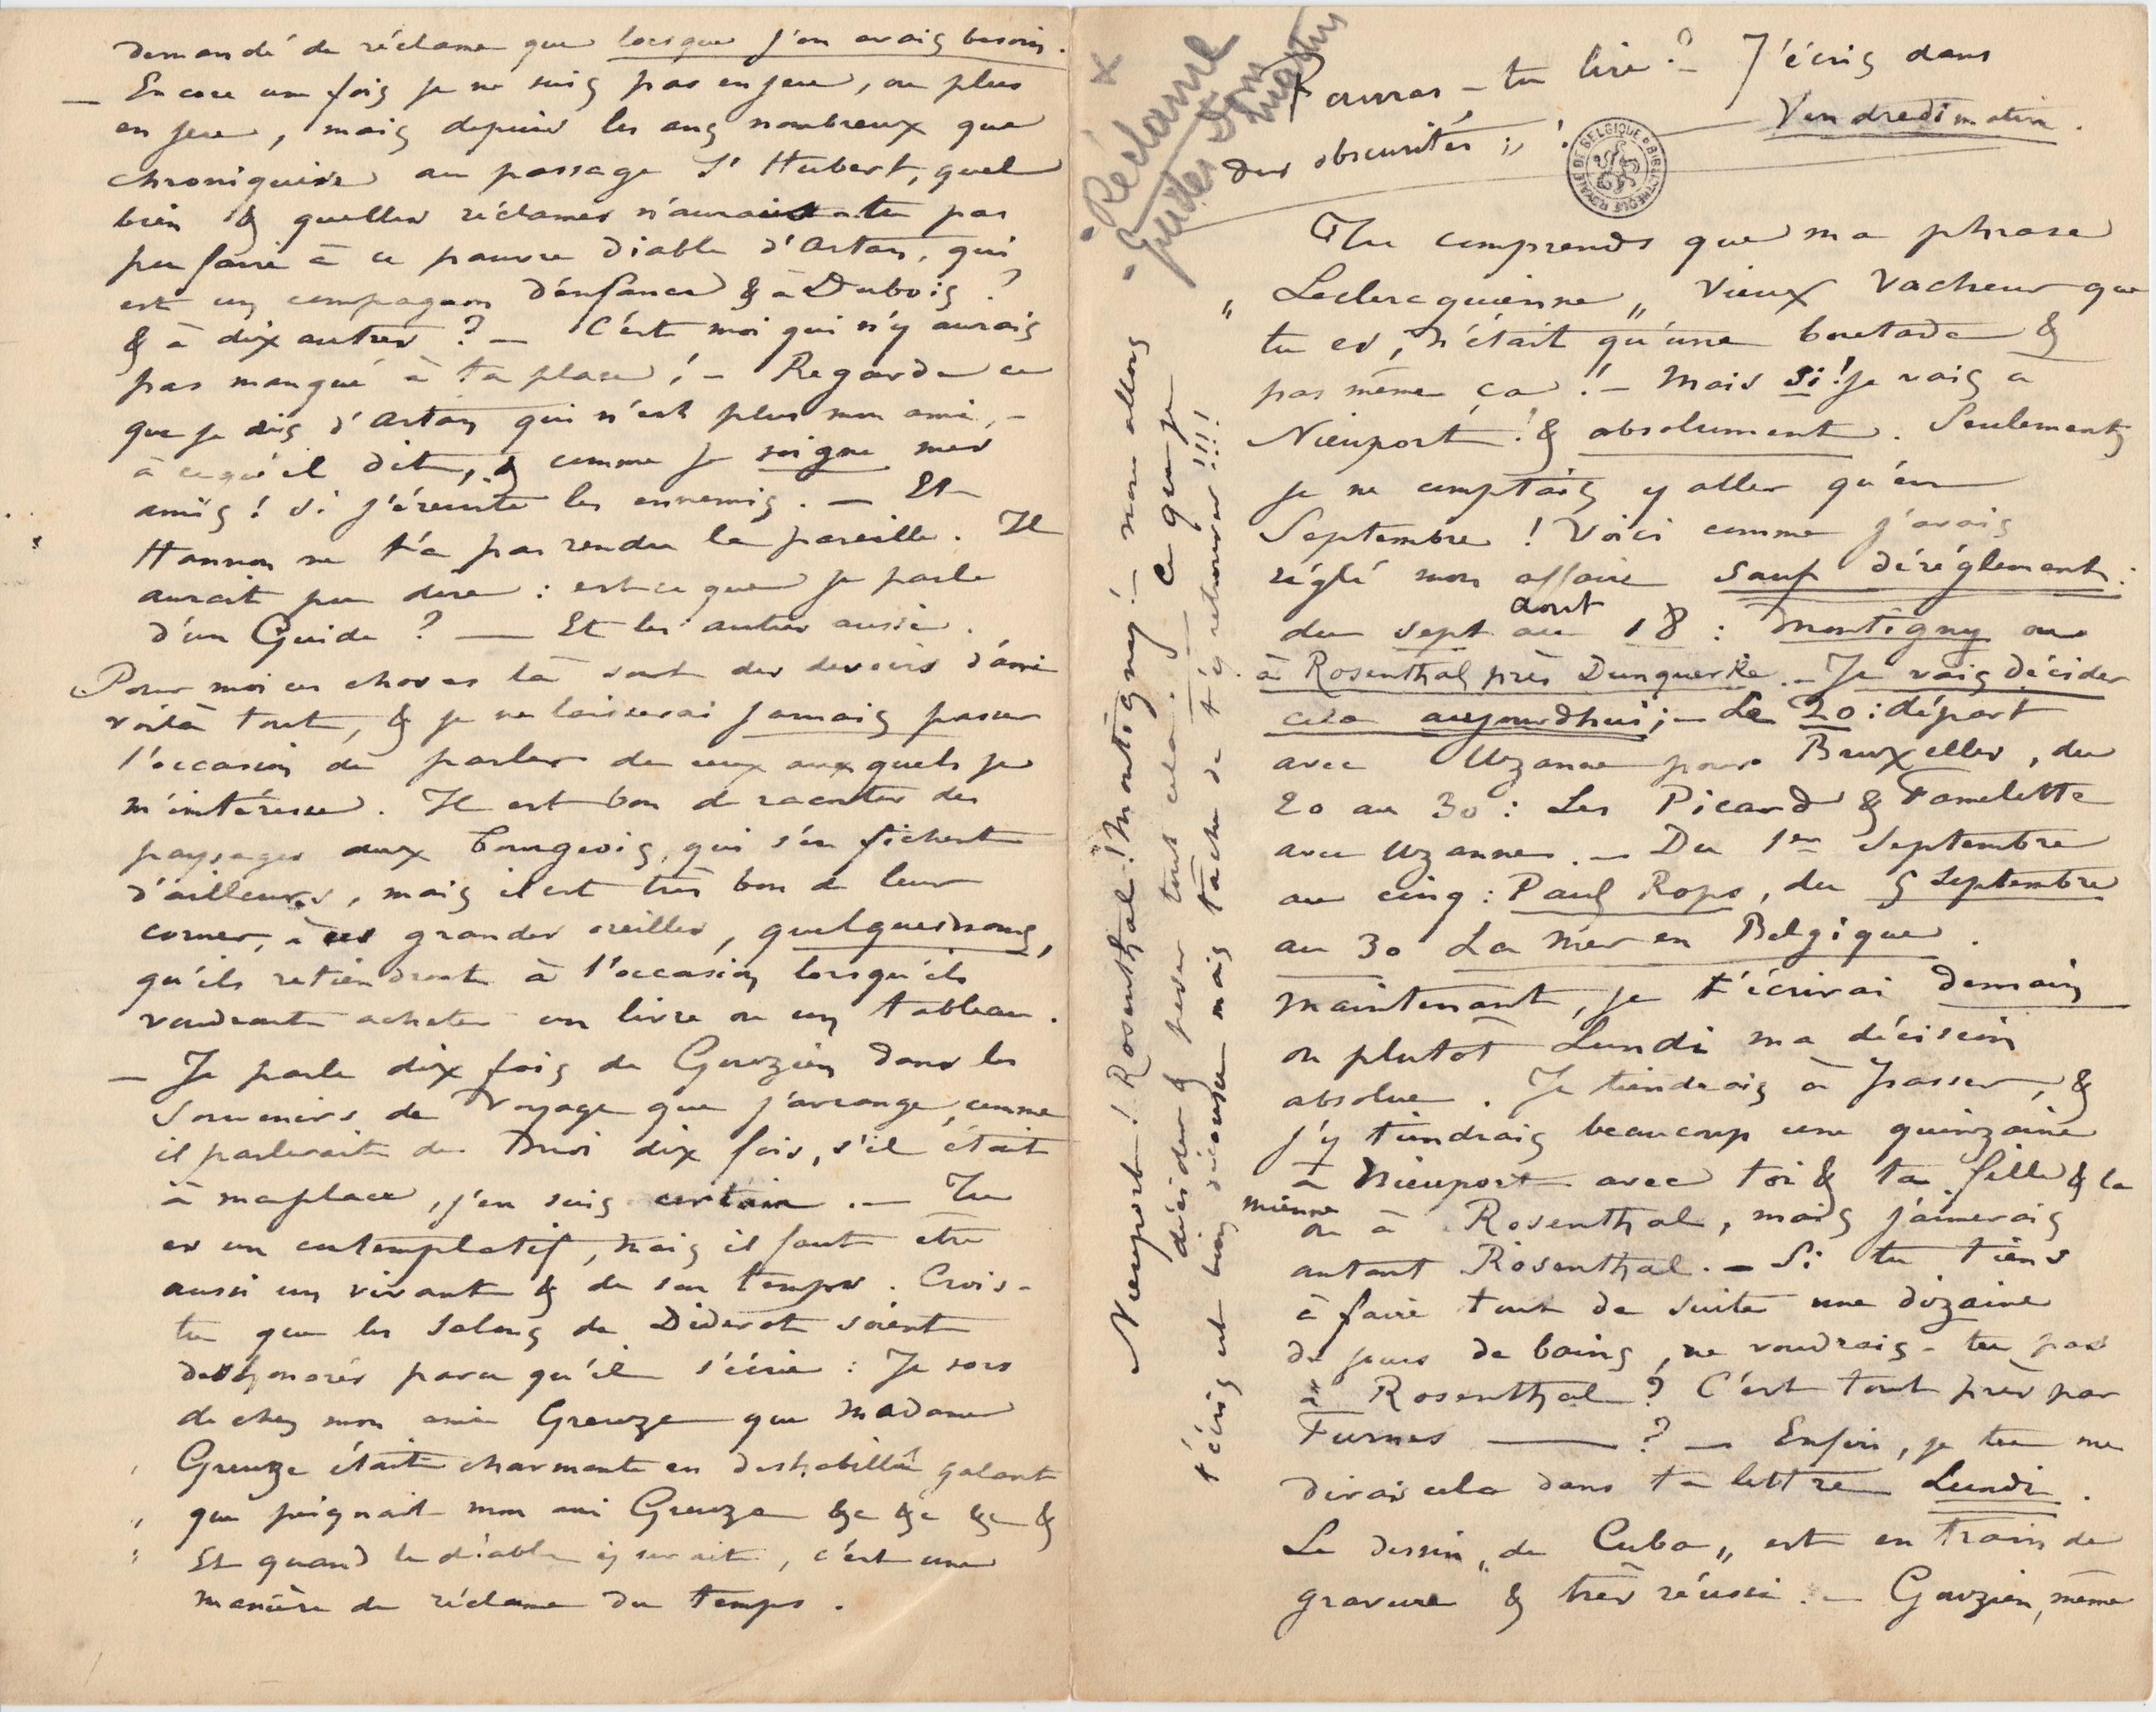 Pourras-tu lire ? – J'écris dans
des obscurités ,, !
Vendredi matin.
x
- Réclame
- Guides Dom
Martin
BIBLIOTHEQUE ROYALE DE BELGIQUE
Tu comprends que ma phrase
„ Leclercquienne „ vieux vacheur que
tu es, n'était qu'une boutade &
pas même ça ! – Mais si ! je vais à
Nieuport ! & absolument. Seulement
je ne comptais y aller qu'en
Septembre ! Voici comme j'avais
réglé mon affaire sauf déréglement :
du sept au 18 aout : Montigny ou
à Rosenthal près Dunquerke. – Je vais décider
cela aujourdhui ; – Le 20 : départ
avec Uzanne pour Bruxelles, du
20 au 30 : Les Picard & Famelette
avec Uzanne. – Du 1er Septembre
au cinq : Paul Rops, du 5 Septembre
au 30 La Mer en Belgique.
Maintenant, je t'écrirai demain
ou plutôt Lundi ma décision
absolue. Je tiendrais à passer, &
j'y tiendrais beaucoup une quinzaine
à Nieuport avec toi & ta fille & la
mienne ou à Rosenthal, mais j'aimerais
autant Rosenthal. – Si tu tiens
à faire tout de suite une dizaine
de jours de bains, ne voudrais-tu pas
à Rosenthal ? C'est tout près par
Furnes —— ? – Enfin, tu me
diras cela dans ta lettre Lundi.
Le dessin „de Cuba„ est en train de
gravure & très réussi. – Gouzien, même
Nieuport ! Rosenthal ! Montigny ! – nous allons
décider & peser tout cela. Ce que je
t'écris est bien décousu mais tâche de t'y retrouver !!!!
demandé de réclame que lorsque j'en avais besoin.
– Encore une fois je ne suis pas en jeu, ou plus
en jeu, mais depuis les ans nombreux que
chroniquise au passage St Hubert, quel
bien & quelles réclames n'aurais-tu pas
pu faire à ce pauvre diable d'Artan, qui
est un compagnon d'enfance & à Dubois ?
& à dix autres ? – C'est moi qui n'y aurais
pas manqué à ta place ! – Regarde ce
que je dis d'Artan qui n'est plus mon ami, –
à ce qu'il dit, & comme je soigne mes
amis ! si j'éreinte les ennemis. – Et
Hannon ne t'a pas rendu la pareille. Il
aurait pu dire : est-ce que je parle
d'un Guide ? — Et les autres aussi.
Pour moi ces choses là sont des devoirs d'ami
voilà tout, & je ne laisserai jamais passer
l'occasion de parler de ceux auxquels je
m'intéresse. Il est bon de raconter des
paysages aux bourgeois, qui s'en fichent
d'ailleurs, mais il est très bon de leur
corner, à ces grandes oreilles, quelques noms,
qu'ils retiendront à l'occasion lorsqu'ils
voudront acheter un livre ou un tableau.
– Je parle dix fois de Gouzien dans les
Souvenirs de Voyage que j'arrange, comme
il parlerait de moi dix fois, s'il était
à ma place, j'en suis certain. – Tu
es un contemplatif, mais il faut etre
aussi un vivant & de son temps. Crois-
tu que les Salons de Diderot soient
deshonorés parce qu'il s'écrie : Je sors
de chez mon ami Greuze que Madame
„ Greuze était charmante en deshabillé galant
„ que peignait mon ami Greuze &c &c &c &
„ Et quand le diable y serait, c'est une
manière de réclame du temps.